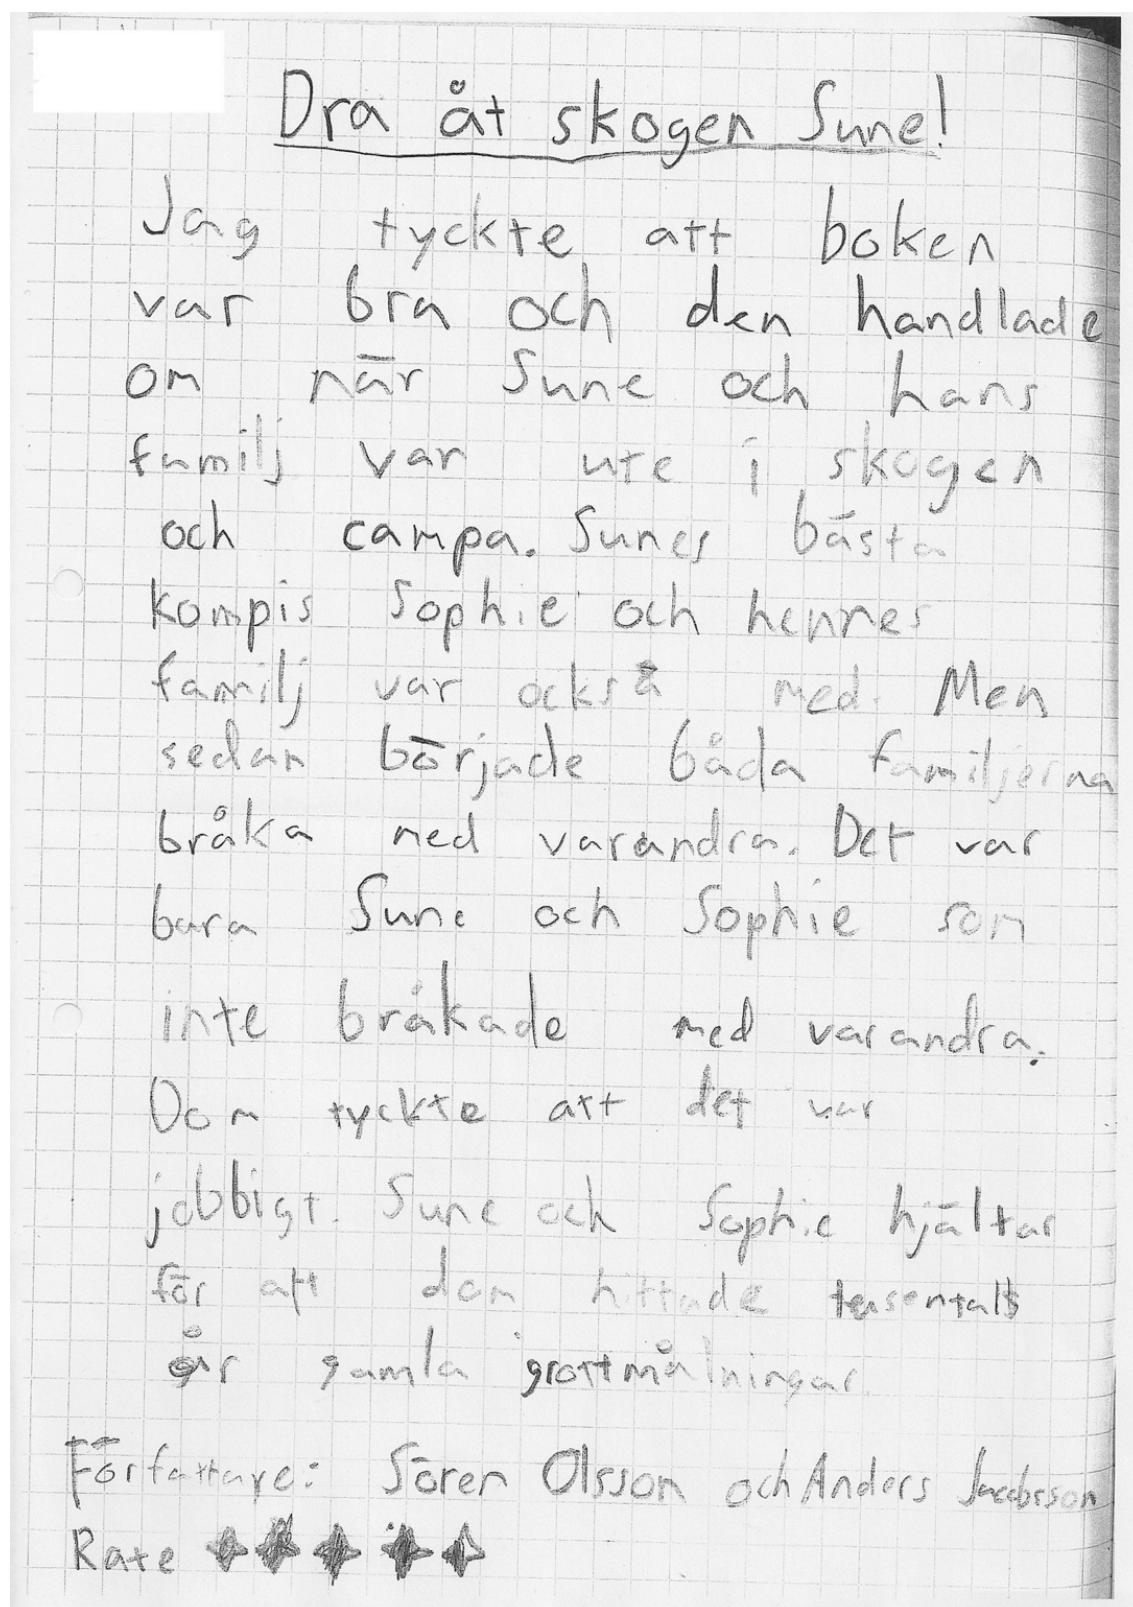 Dra åt skogen Sune!
Jag tyckte att boken
var bra och den handlade
om när Sune och hans
familj var ute i skogen
och campa. Sunes bästa
kompis Sophie och hennes
familj var också med. Men
sedan började båda familjerna
bråka med varandra. Det var
bara Sune och Sophie som
inte bråkade med varandra.
Dom tyckte att det var
jobbigt. Sune och Sophie hjältar
för att dom hittade tusentals
år gamla grottmålningar.
Författare: Sören Olsson och Anders Jacobsson
Rate